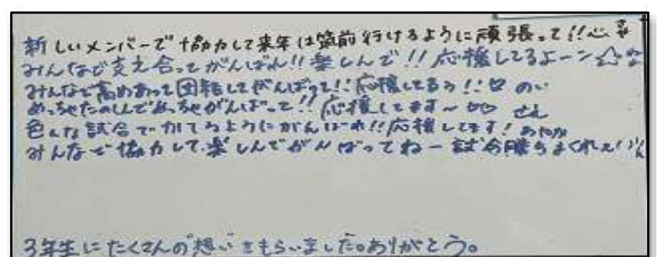 新しいメンバーで協力して来年は筑前行けるように頑張って!!
みんなで支え合ってがんばれ!!楽しんで!!応援してるよーン☆
みんなで高めあって団結してがんばって!!応援してるう!!♡ のい
めっちゃたのしんでめっちゃがんばって!!応援してます〜♡♡
色んな試合でかてるようにがんばれ!!応援してます! あやか
みんなで協力して楽しんでがんばってねー試合勝ちまくれぇ!
3年生にたくさんの想いをもらいました。ありがとう。